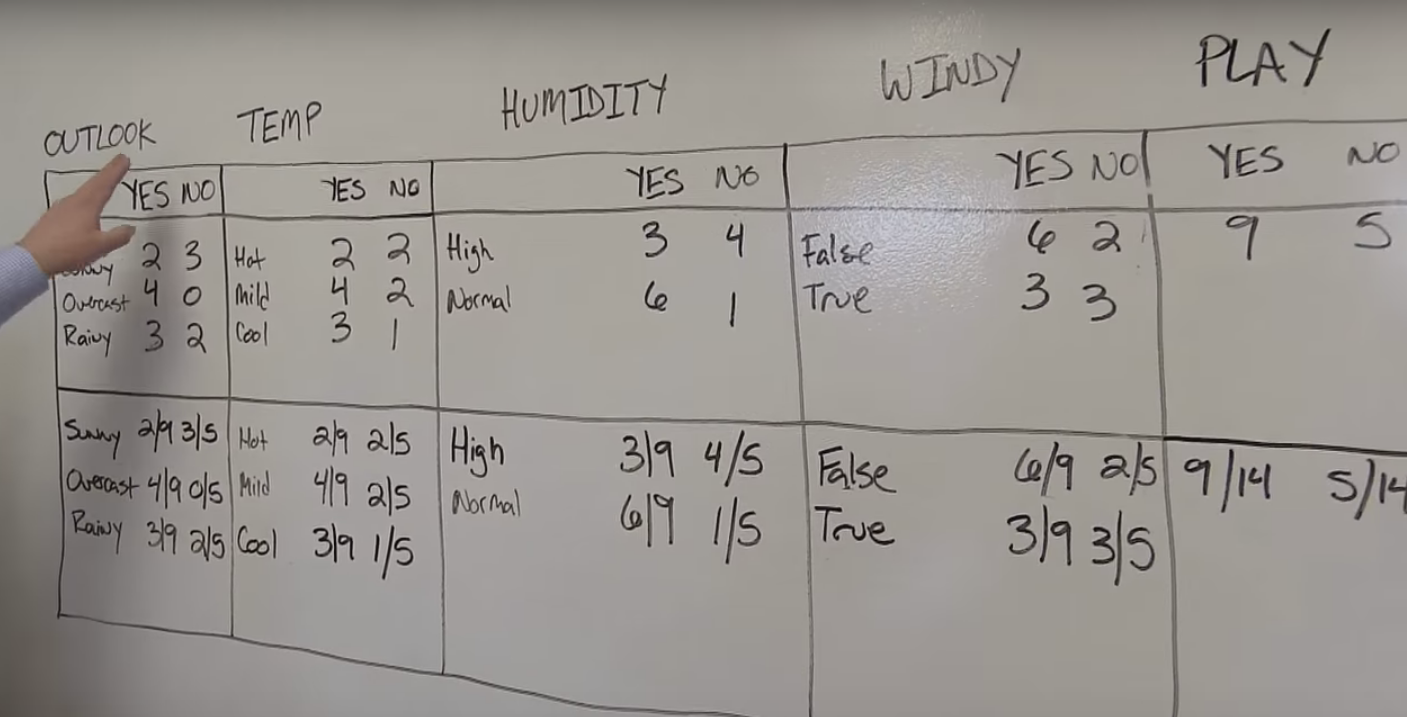 OUTLOOK TEMP HUMIDITY WINDY PLAY
YES NO YES NO YES NO YES NO YES NO
2 3 Hot 2 2 High 3 4 False 6 2 9 5
Overcast 4 0 Mild 4 2 Normal 6 1 True 3 3
Rainy 3 2 Cool 3 1
Sunny 2/9 3/5 Hot 2/9 2/5 High 3/9 4/5 False 6/9 2/5 9/14 5/14
Overcast 4/9 0/5 Mild 4/9 2/5 Normal 6/9 1/5 True 3/9 3/5
Rainy 3/9 2/5 Cool 3/9 1/5